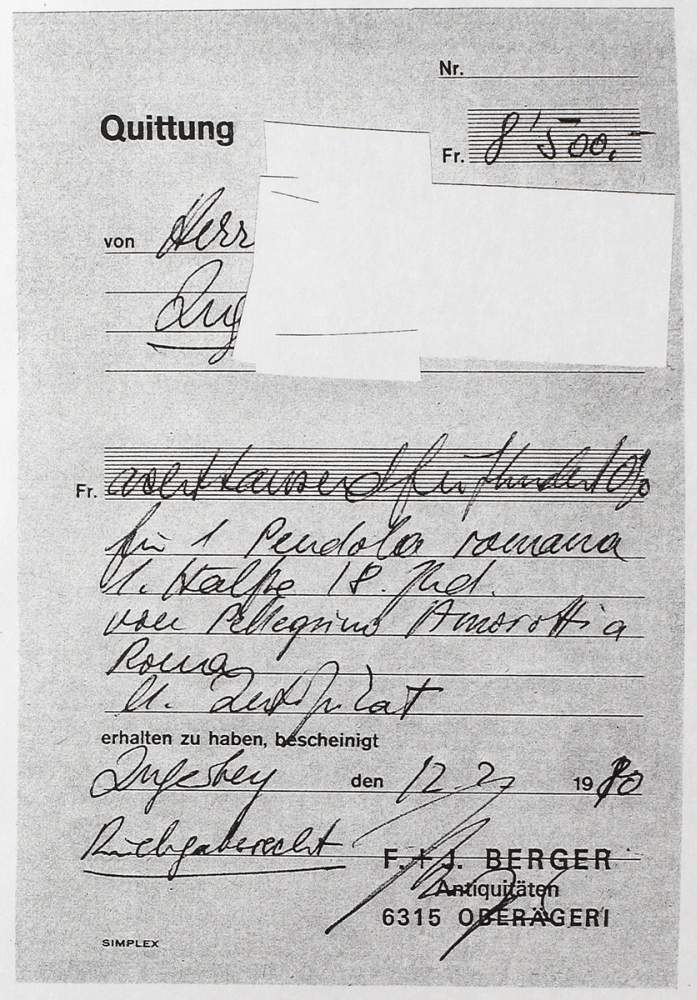 Nr.
Quittung
Fr. 8'500.-
von Herr
Zug
Fr. achttausendfünfhundert 0/0
für 1 Pendola romana
1. Hälfte 18. Jhd.
von Pellegrino Amorotti a
Roma
lt. Zertifikat
erhalten zu haben, bescheinigt
den 12. 2. 19 80
Rückgaberecht
F. + J. BERGER
Antiquitäten
6315 OBERÄGERI
SIMPLEX